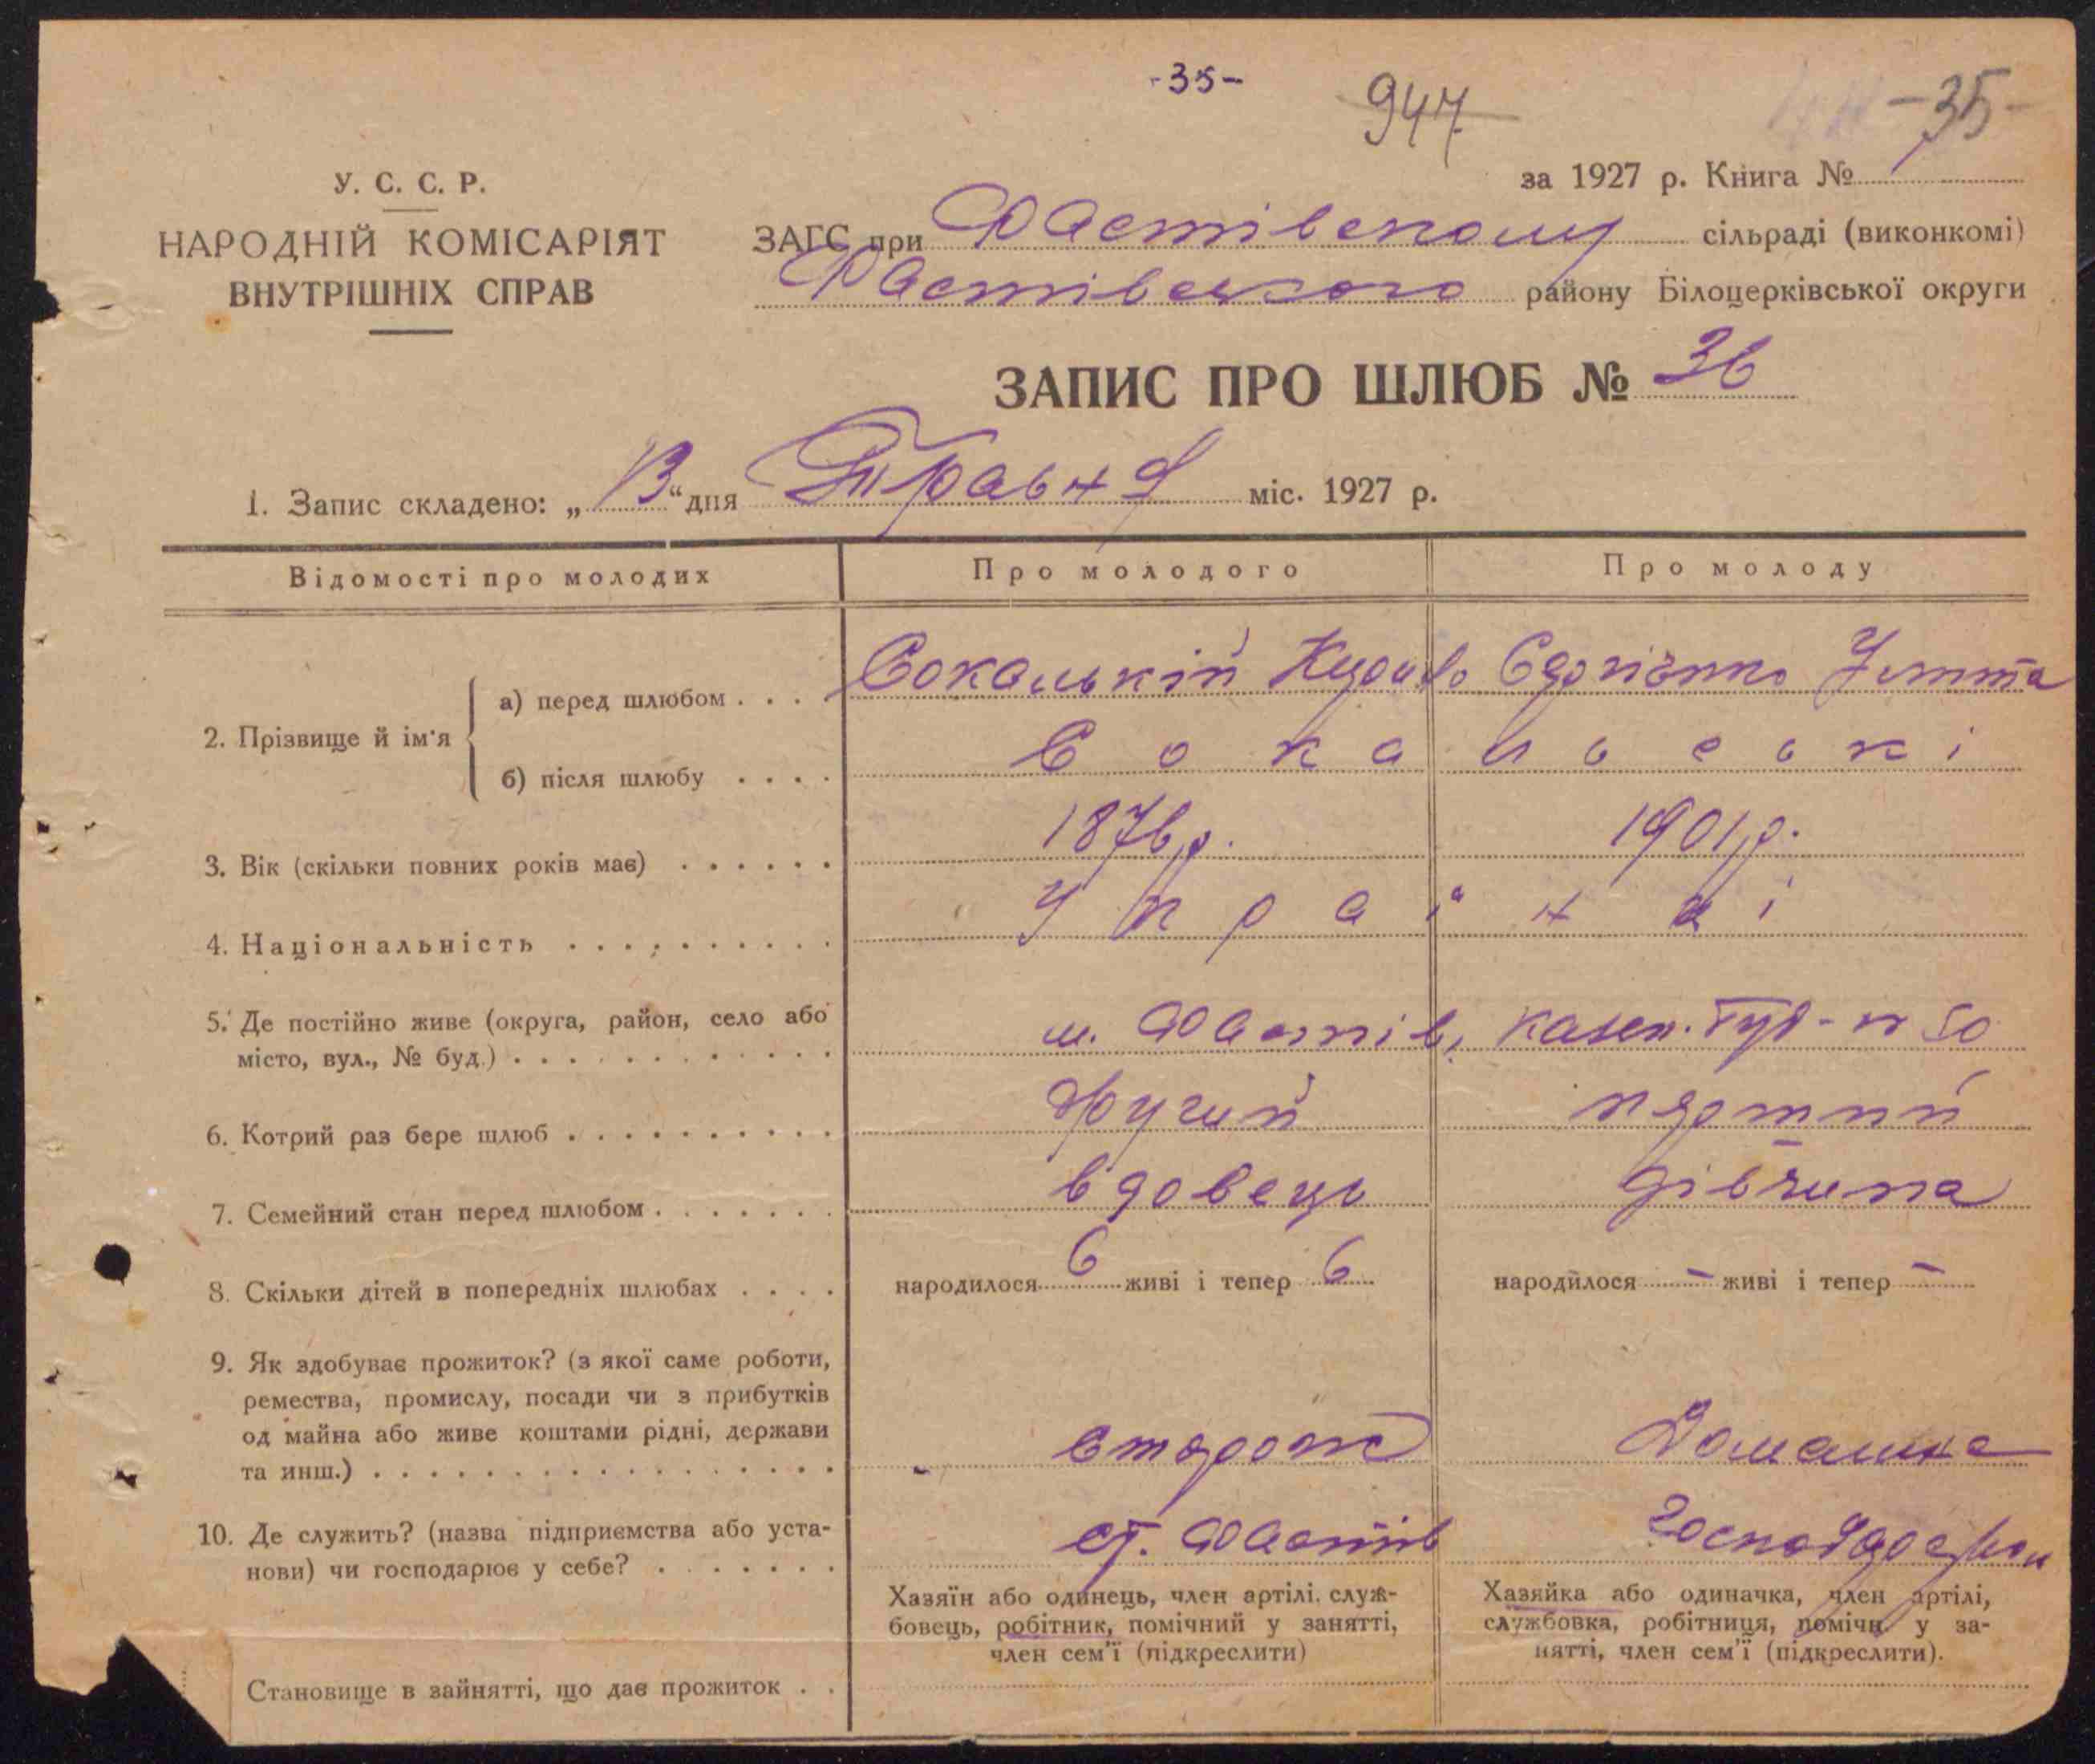 -35-
947
-35-
У. С. С. Р.
НАРОДНІЙ КОМІСАРІЯТ
ВНУТРІШНІХ СПРАВ
за 1927 р. Книга № 1
ЗАГС при Фастівському сільраді (виконкомі)
Фастівського району Білоцерківської округи
ЗАПИС ПРО ШЛЮБ № 36
1. Запис складено: „13“ дня Травня міс. 1927 р.
Відомості про молодих
Про молодого
Про молоду
2. Прізвище й ім'я
а) перед шлюбом . . . .
б) після шлюбу . . . .
Сокальскій
Сокальські
3. Вік (скільки повних років має) . . . . . .
1876 р.
1901 р.
4. Національність . . . . . . . . . .
Українці
5. Де постійно живе (округа, район, село або
місто, вул., № буд.) . . . . . . . . . . . .
м. Фастів, Казен. буд- № 50
6. Котрий раз бере шлюб . . . . . . . . . .
другий
первий
7. Семейний стан перед шлюбом . . . . . . .
вдовець
дівчина
8. Скільки дітей в попередніх шлюбах . . . .
народилося 6 живі і тепер 6
народилося – живі і тепер –
9. Як здобуває прожиток? (з якої саме роботи,
ремества, промислу, посади чи з прибутків
од майна або живе коштами рідні, держави
та инш.) . . . . . . . . . . . . . . . . .
сторож
Домашнє
10. Де служить? (назва підприємства або уста-
нови) чи господарює у себе? . . . . . . .
ст. Фастів
господарство
Хазяїн або одинець, член артілі, служ-
бовець, робітник, помічний у занятті,
член сем'ї (підкреслити)
Хазяйка або одиначка, член артілі,
службовка, робітниця, помічн. у за-
нятті, член сем'ї (підкреслити).
Становище в зайнятті, що дає прожиток . .